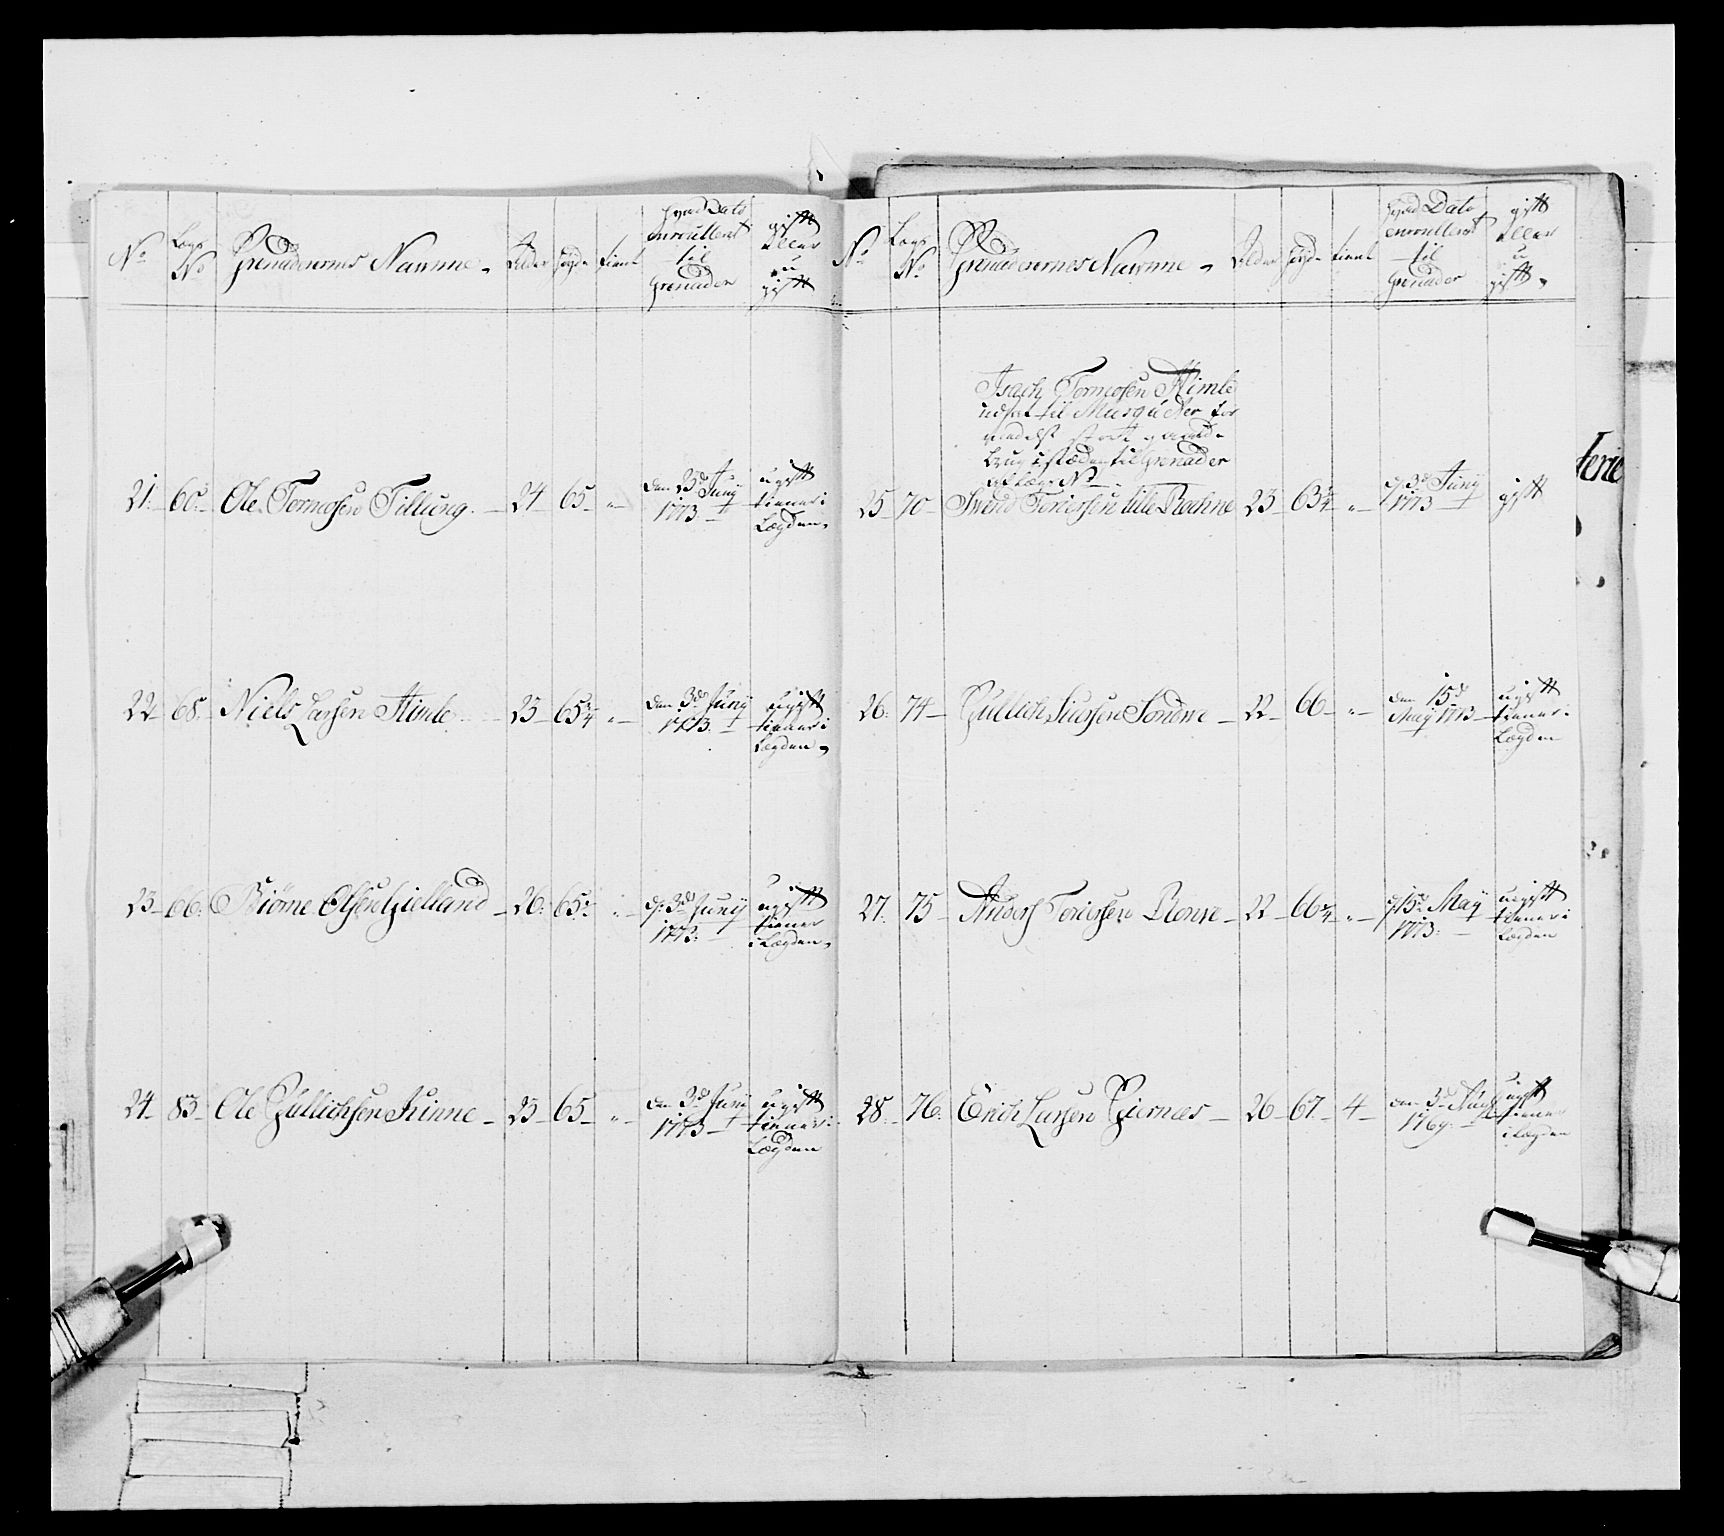 No Lægs No Grenaderernes Nawnne Alder høyde tient hvad Dato enroullerat til Grenader gift Eller u gift
21 60 Ole Tormosen Tillung 24 65 den 23de Juny 1773 ugift tienner i Lægden
22 68 Niels Larsen Himle 23 65 3/4 den 3de Juny 1773 ugift tienner i Lægden
23 66 Biørne Olsen Gielland 26 65 d: 3de Juny 1773 ugift tienner i Lægden
24 83 Ole Gullichsen Kinne 23 65 den 3de Juny 1773 ugift tienner i Lægden
No Lægs No Grenaderernes Nawnne Alder høyde tient hvad Dato enroullerat til Grenader gift Eller u gift
Isach Tormosen Himle
udsat til Musqueter for
medelst
Brug i stæden til Grenader
af Læg No
25 70 Swend Toriersen lille Rochne 23 63 3/4 d: 3de Juny 1773 gift
26 74 Gullich Siursen Sondwe 22 66 den 15de May 1773 ugift tienner i Lægden
27 75 Anders Toriersen Ronve 22 66 d: 15de May 1773 ugift tienner i Lægden
28 76 Erich Larsen Giernæs 26 67 4 den 3de 1769 ugift tienner i Lægden
terie